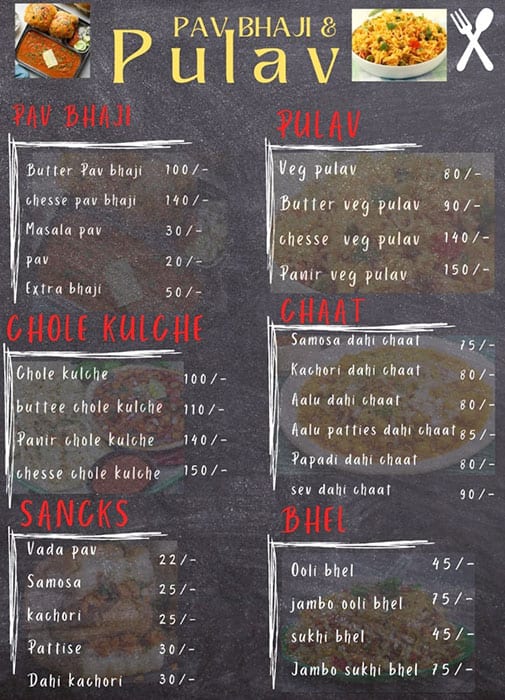 PAV BHAJI &
Pulav
PAV BHAJI
Butter Pav bhaji 100/-
chesse pav bhaji 140/-
Masala pav 30/-
pav 20/-
Extra bhaji 50/-
CHOLE KULCHE
Chole kulche 100/-
buttee chole kulche 110/-
Panir chole kulche 140/-
chesse chole kulche 150/-
SANCKS
Vada pav 22/-
Samosa 25/-
kachori 25/-
Pattise 30/-
Dahi kachori 30/-
PULAV
Veg pulav 80/-
Butter veg pulav 90/-
chesse veg pulav 140/-
Panir veg pulav 150/-
CHAAT
Samosa dahi chaat 75/-
Kachori dahi chaat 80/-
Aalu dahi chaat 80/-
Aalu patties dahi chaat 85/-
Papadi dahi chaat 80/-
sev dahi chaat 90/-
BHEL
Ooli bhel 45/-
jambo ooli bhel 75/-
sukhi bhel 45/-
Jambo sukhi bhel 75/-